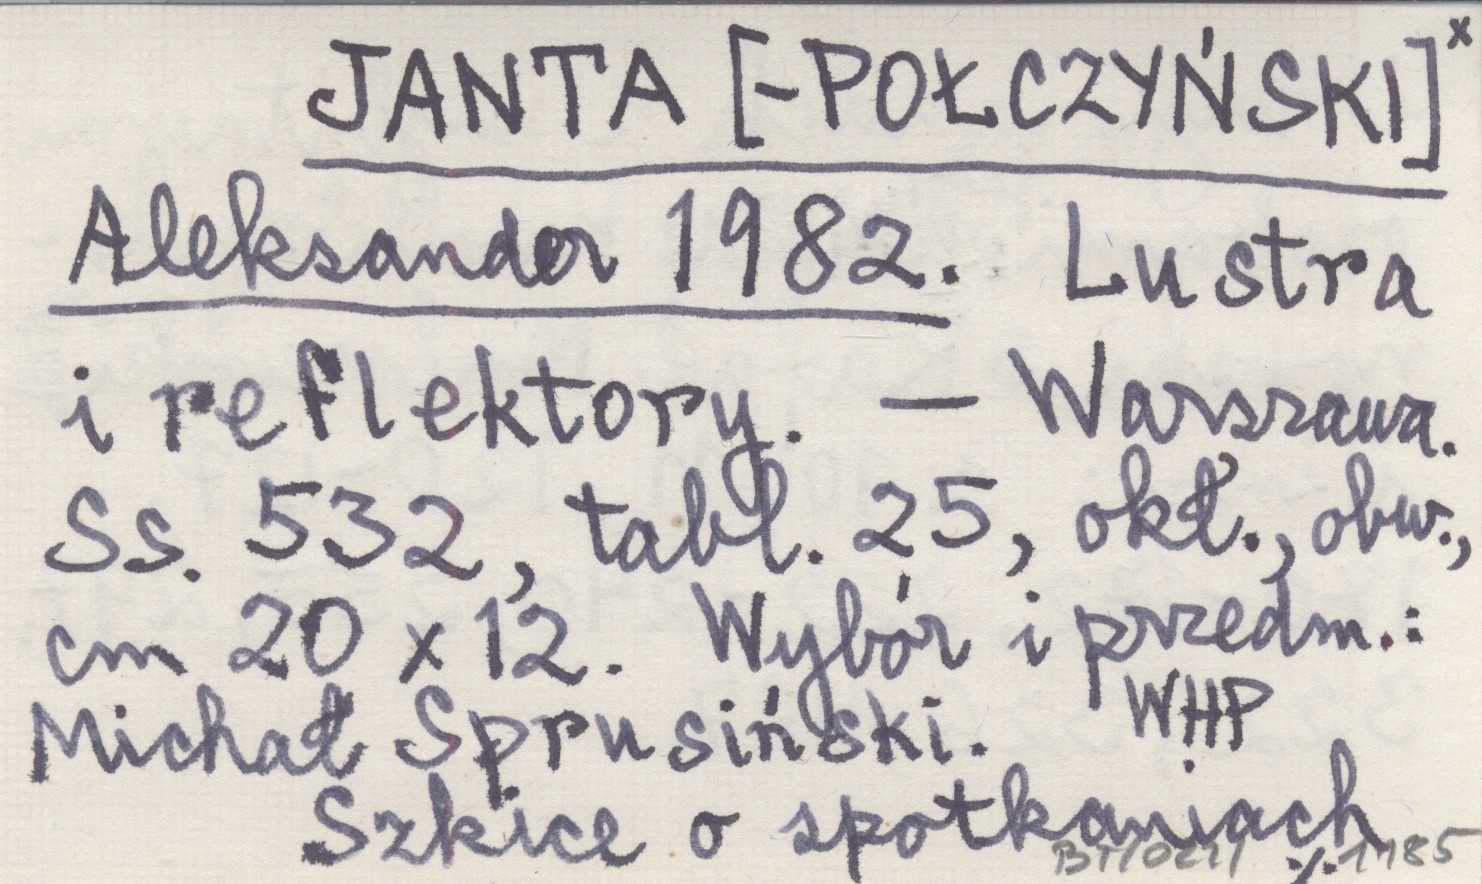 JANTA [-POŁCZYŃSKI]x
Aleksander 1982. Lustra
i reflektory. — Warszawa.
Ss. 532, tabl. 25, okł., obw.,
cm 20 x 12. Wybór i przedm.:
Michał Sprusiński. WHP
Szkice o spotkaniach
1985